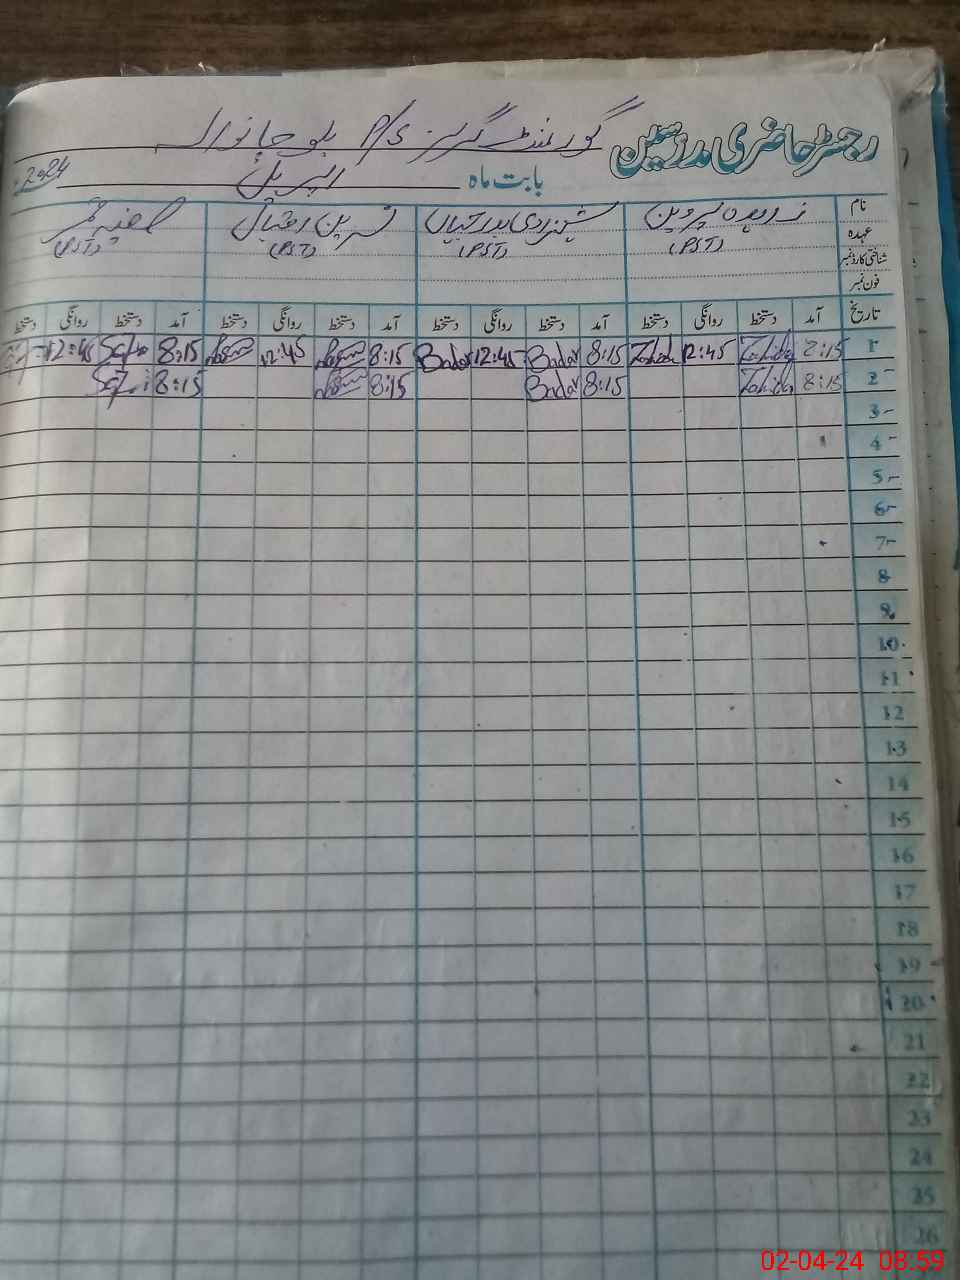 رجسٹر حاضری مدرسین گورنمنٹ گرلز P/S بلوچانوالہ
بابت ماہ اپریل 2024
نام زاہدہ پروین شہزادی بدر نسرین اقبال صفیہ
عہدہ (PST) (PST) (PST) (PST)
شناختی کارڈ نمبر
فون نمبر
تاریخ آمد دستخط روانگی دستخط آمد دستخط روانگی دستخط آمد دستخط روانگی دستخط آمد دستخط روانگی دستخط
1 8:15 Zahida 12:45 Zahida 8:15 Badar 12:45 Badar 8:15 12:45 8:15 12:45
2 8:15 Zahida 8:15 Badar 8:15 8:15
3
4
5
6
7
8
9
10
11
12
13
14
15
16
17
18
19
20
21
22
23
24
25
26
02-04-24 08:59